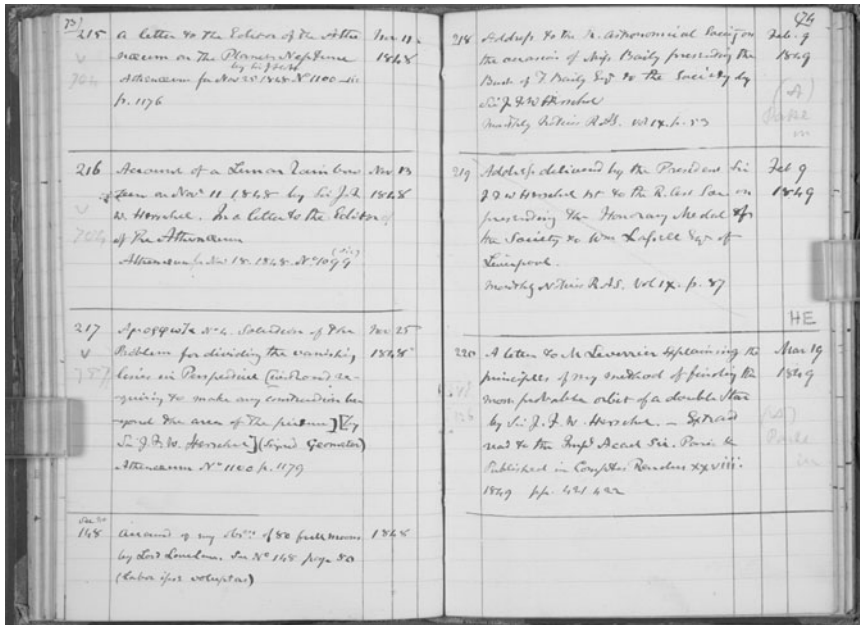 73)
215 A letter to the Editor of the Athe Nov 11
næum on The Planet Neptune 1848
by Sir J F W H
Athenæum for Nov 25 1848 No 1100
p. 1176
216 Account of a Lunar Rainbow Nov 13
seen on Novr 11 1848 by Sir J. F. 1848
W. Herschel. In a letter to the Editor
of The Athenæum
Athenæum for Nov 18. 1848. No 1099
217 No 4. Solution of the Nov 25
Problem for dividing the vanishing 1848
lines in Perspective (without re-
quiring to make any construction be
yond the area of the picture)] [by
Sir J. F. W. Herschel] (Signed Geometer)
Athenæum No 1100 p. 1179
148 Account of my obsns of 80 full moons 1848
by Lord Londoun. See No 148 page 50
(labor ipse voluptas)
74
218 Address to the R. Astronomical Society on Feb. 9
the occasion of Miss Baily presenting the 1849
Bust of F Baily Esqr to the Society by
Sir J F W Herschel
Monthly Notices R.A.S. Vol IX. p. 53
219 Address delivered by the President Sir Feb 9
J F W Herschel Bt to the R. Ast Soc on 1849
presenting the Honorary Medal of
the Society to Wm Lassell Esqr of
Liverpool.
Monthly Notices R.A.S. Vol IX. p. 87
HE
220 A letter to M Leverrier explaining the Mar 19
principles of my method of finding the 1849
most probable orbit of a double Star
by Sir J. F. W. Herschel. — Extract
read to the Impl Acad Sci. Paris &
Published in Comptes Rendus xxviii.
1849 pp. 421 422